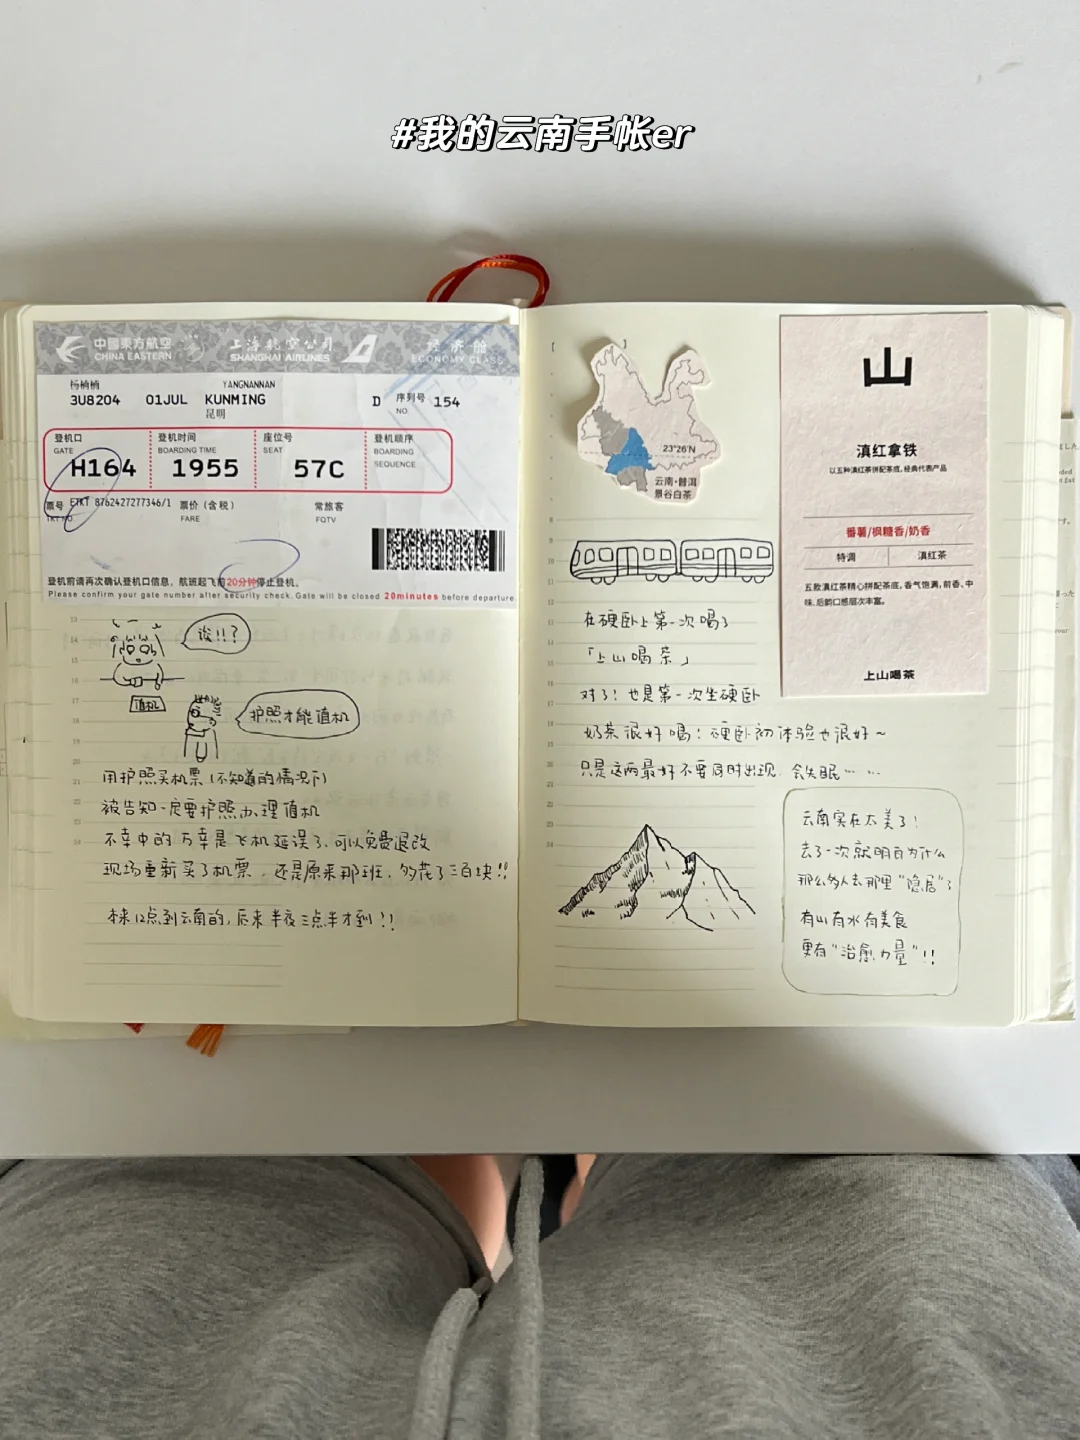 #我的云南手帐er
中國東方航空
CHINA EASTERN
上海航空公司
SHANGHAI AIRLINES
经济舱
ECONOMY CLASS
杨楠楠
YANGNANNAN
3U8204 01JUL KUNMING D 序列号 154
昆明
NO.
登机口 登机时间 座位号 登机顺序
GATE BOARDING TIME SEAT BOARDING SEQUENCE
H164 1955 57C
票号 ETKT 8762427277346/1 票价(含税) 常旅客
TKT NO. FARE FQTV
登机前请再次确认登机口信息，航班起飞前20分钟停止登机。
Please confirm your gate number after security check. Gate will be closed 20minutes before departure.
诶!!?
值机
护照才能值机
用护照买机票(不知道的情况下)
被告知一定要护照办理值机
不幸中的万幸是飞机延误了,可以免费退改
现场重新买了机票,还是原来那班,多花了三百块!!
本来12点到云南的,后来半夜三点半才到!!
23°26′N
云南·普洱
景谷白茶
在硬卧上第一次喝了
「上山喝茶」
对了!也是第一次坐硬卧
奶茶很好喝!硬卧初体验也很好~
只是这两最好不要同时出现,会失眠……
云南实在太美了!
去了一次就明白为什么
那么多人去那里"隐居"了
有山有水有美食
更有"治愈力量"!!
山
滇红拿铁
以五种滇红茶拼配茶底，经典代表产品
番薯/枫糖香/奶香
特调 滇红茶
五款滇红茶精心拼配茶底，香气饱满，前香、中
味、后韵口感层次丰富。
上山喝茶